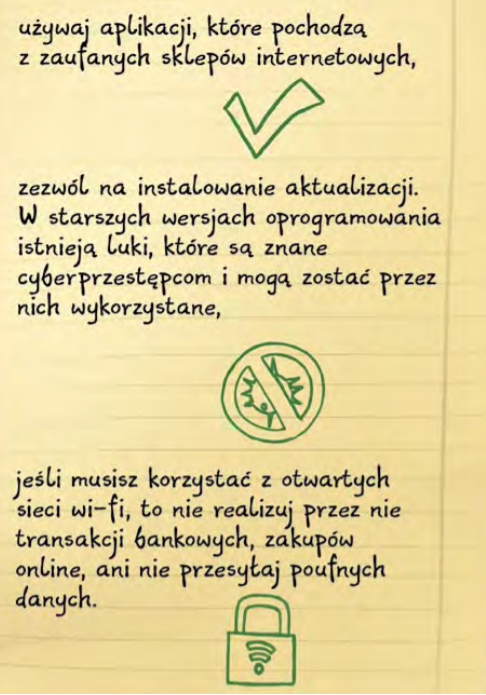 używaj aplikacji, które pochodzą
z zaufanych sklepów internetowych,
zezwól na instalowanie aktualizacji.
W starszych wersjach oprogramowania
istnieją luki, które są znane
cyberprzestępcom i mogą zostać przez
nich wykorzystane,
jeśli musisz korzystać z otwartych
sieci wi-fi, to nie realizuj przez nie
transakcji bankowych, zakupów
online, ani nie przesyłaj poufnych
danych.